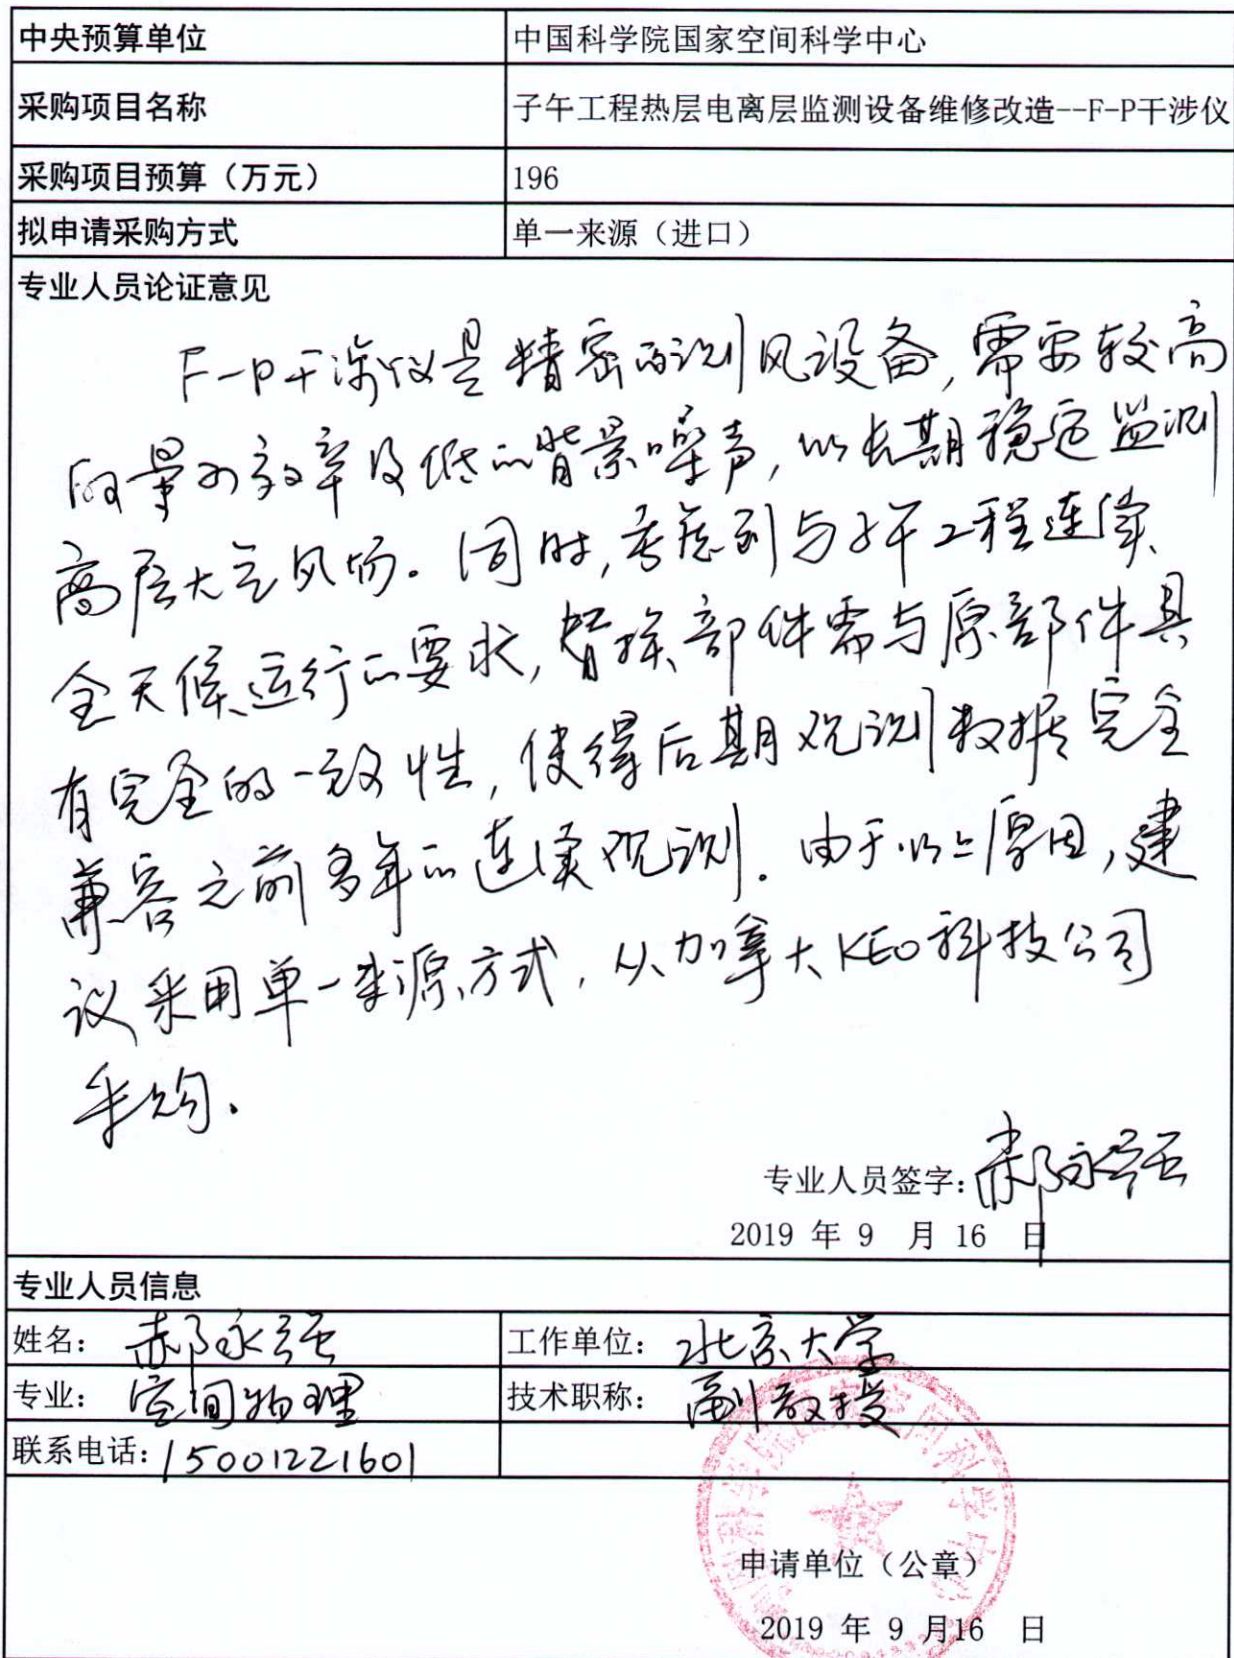 中央预算单位 中国科学院国家空间科学中心
采购项目名称 子午工程热层电离层监测设备维修改造--F-P干涉仪
采购项目预算（万元） 196
拟申请采购方式 单一来源（进口）
专业人员论证意见
F-P干涉仪是精密的测风设备,需要较高
的量子效率及低的背景噪声,以长期稳定监测
高层大气风场。同时,考虑到与子午工程连续、
全天候运行的要求,替换部件需与原部件具
有完全的一致性,使得后期观测数据完全
兼容之前多年的连续观测。由于以上原因,建
议采用单一来源方式,从加拿大KEO科技公司
采购.
专业人员签字: 郝永强
2019 年 9 月 16 日
专业人员信息
姓名: 郝永强 工作单位: 北京大学
专业: 空间物理 技术职称: 副教授
联系电话: 15001221601
中国科学院国家空间科学中心
申请单位（公章）
2019 年 9 月16 日